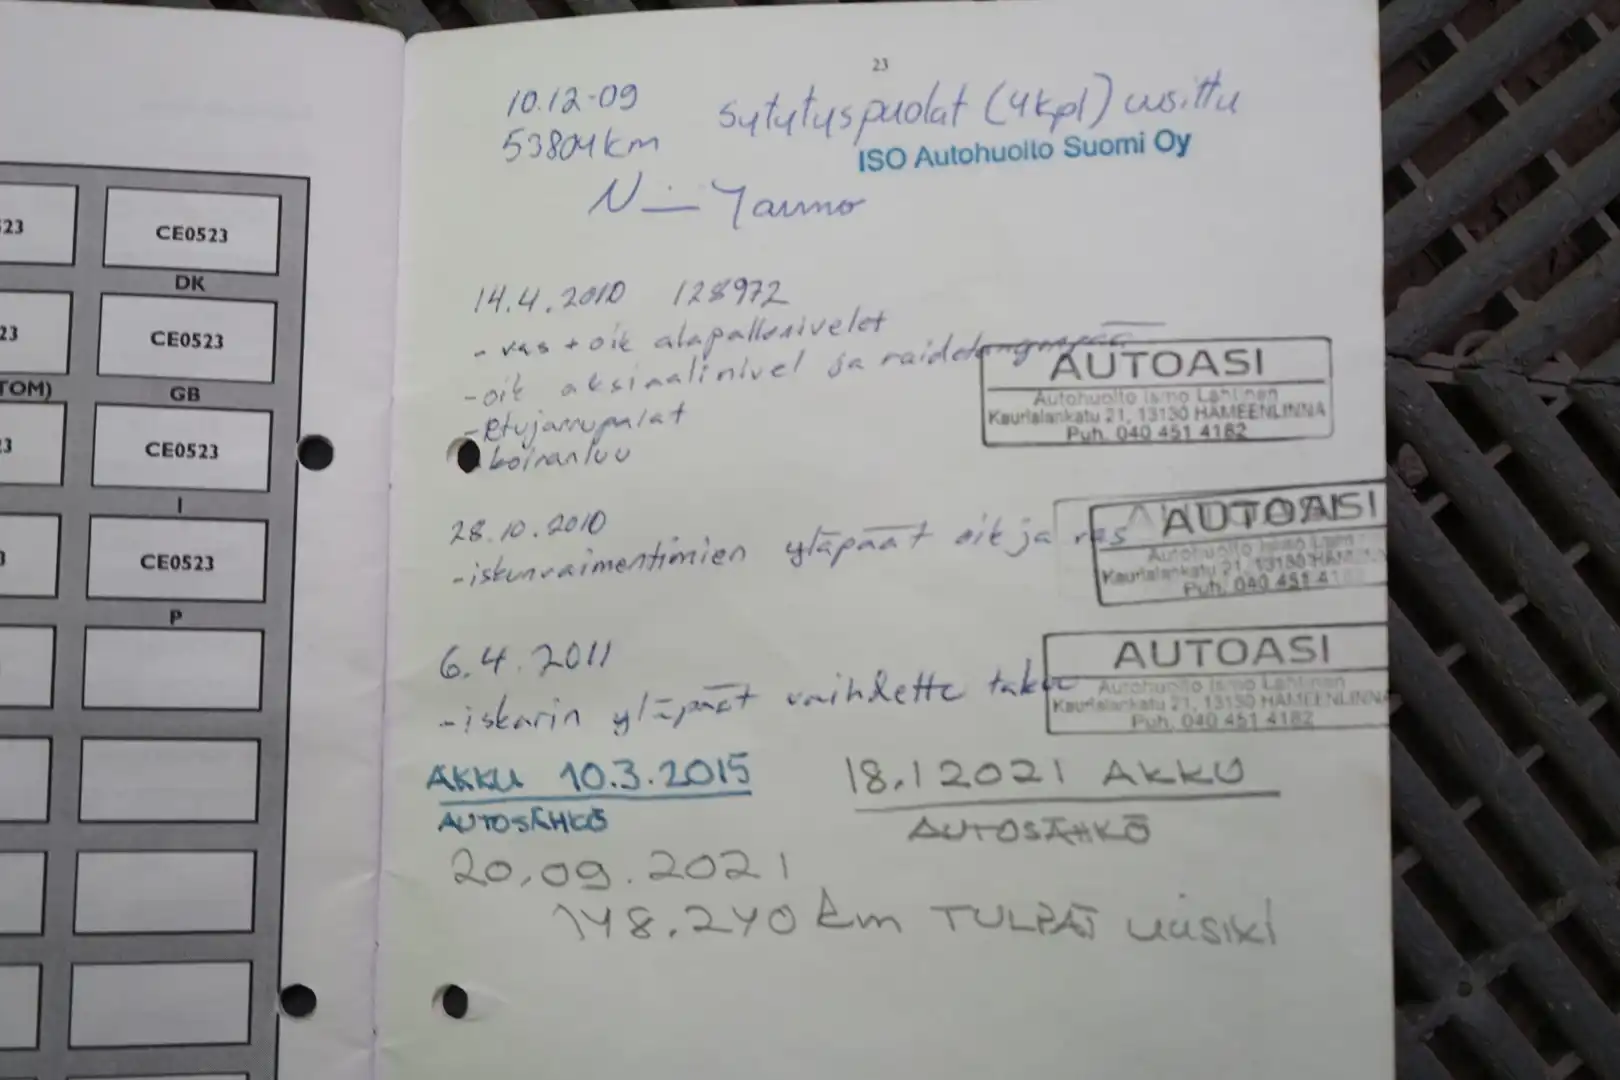 23
10.12-09 sytytyspuolat (4kpl) uusittu
53804km ISO Autohuolto Suomi Oy
Jarmo
14.4.2010 128972
- vas + oik alapallonivelet
- oik aksiaalinivel ja raidetangonpää
- etujarrupalat
- koiranluu
AUTOASI
Autohuolto Ismo Lahtinen
Kaurialankatu 21, 13130 HÄMEENLINNA
Puh. 040 451 4182
28.10.2010
- iskunvaimentimien yläpäät oik ja vas
AUTOASI
Autohuolto Ismo
Kaurialankatu 21, 13130
Puh. 040 451
6.4.2011
- iskarin yläpäät vaihdettu taka
AUTOASI
Autohuolto Ismo Lahtinen
Kaurialankatu 21, 13130 HÄMEENLINNA
Puh. 040 451 4182
AKKU 10.3.2015
AUTOSÄHKÖ
18.1 2021 AKKU
AUTOSÄHKÖ
20.09.2021
148.240 km TULPAT UUSIKI
523 CE0523
DK
23 CE0523
TOM) GB
23 CE0523
I
3 CE0523
P